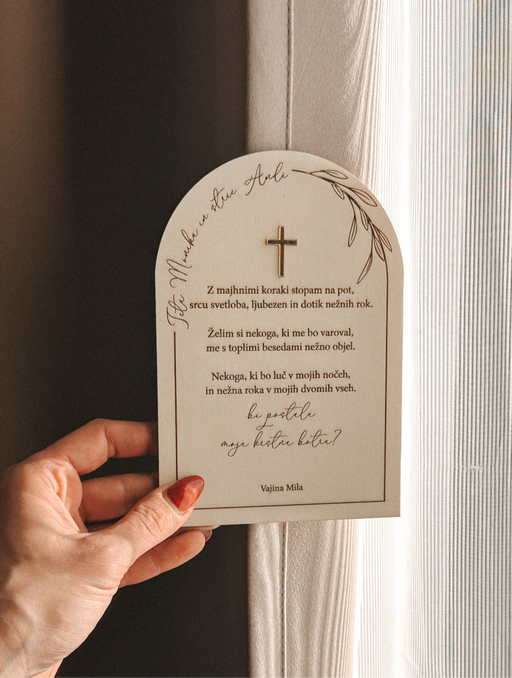 Teta Monika in stric Andi
Z majhnimi koraki stopam na pot,
srcu svetloba, ljubezen in dotik nežnih rok.
Želim si nekoga, ki me bo varoval,
me s toplimi besedami nežno objel.
Nekoga, ki bo luč v mojih nočeh,
in nežna roka v mojih dvomih vseh.
bi postala
moja krstna botra?
Vajina Mila